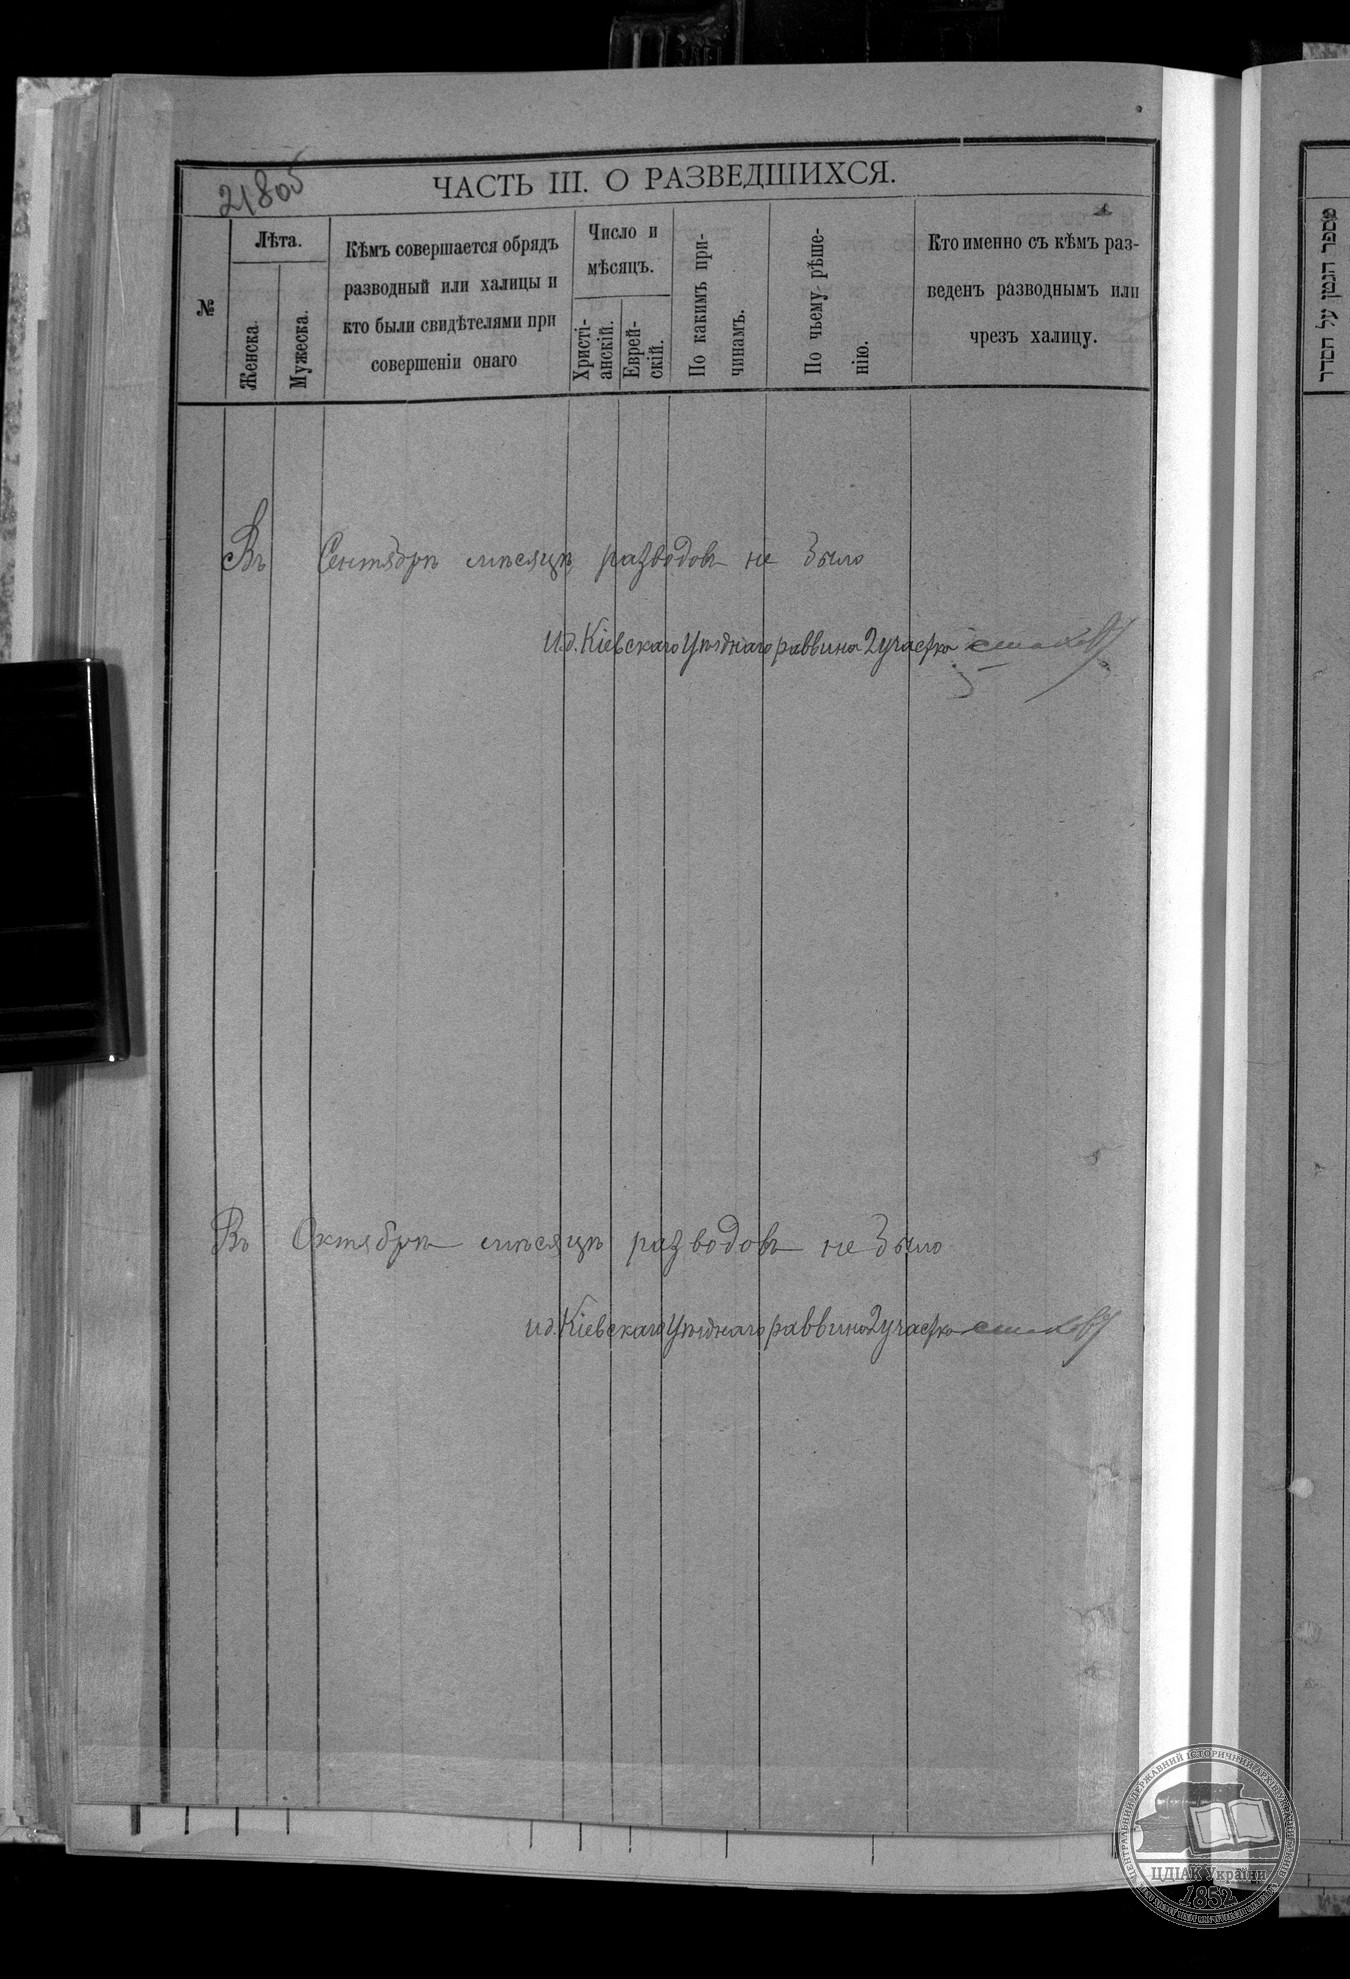 218об
ЧАСТЬ III. О РАЗВЕДШИХСЯ.
№
Лѣта.
Женска.
Мужеска.
Кѣмъ совершается обрядъ
разводный или халицы и
кто были свидѣтелями при
совершеніи онаго
Число и
мѣсяцъ.
Христі-
анскій.
Еврей-
скій.
По какимъ при-
чинамъ.
По чьему рѣше-
нію.
Кто именно съ кѣмъ раз-
веденъ разводнымъ или
чрезъ халицу.
Въ Сентябрѣ мѣсяцѣ разводовъ не было
И.д. Кіевскаго Уѣзднаго раввина 2 участка
Въ Октябрѣ мѣсяцѣ разводовъ не было
ид. Кіевскаго Уѣзднаго раввина 2 участка
מספר הנמן על הסדר
ЦЕНТРАЛЬНИЙ ДЕРЖАВНИЙ ІСТОРИЧНИЙ АРХІВ УКРАЇНИ
ЦДІАК України
1852